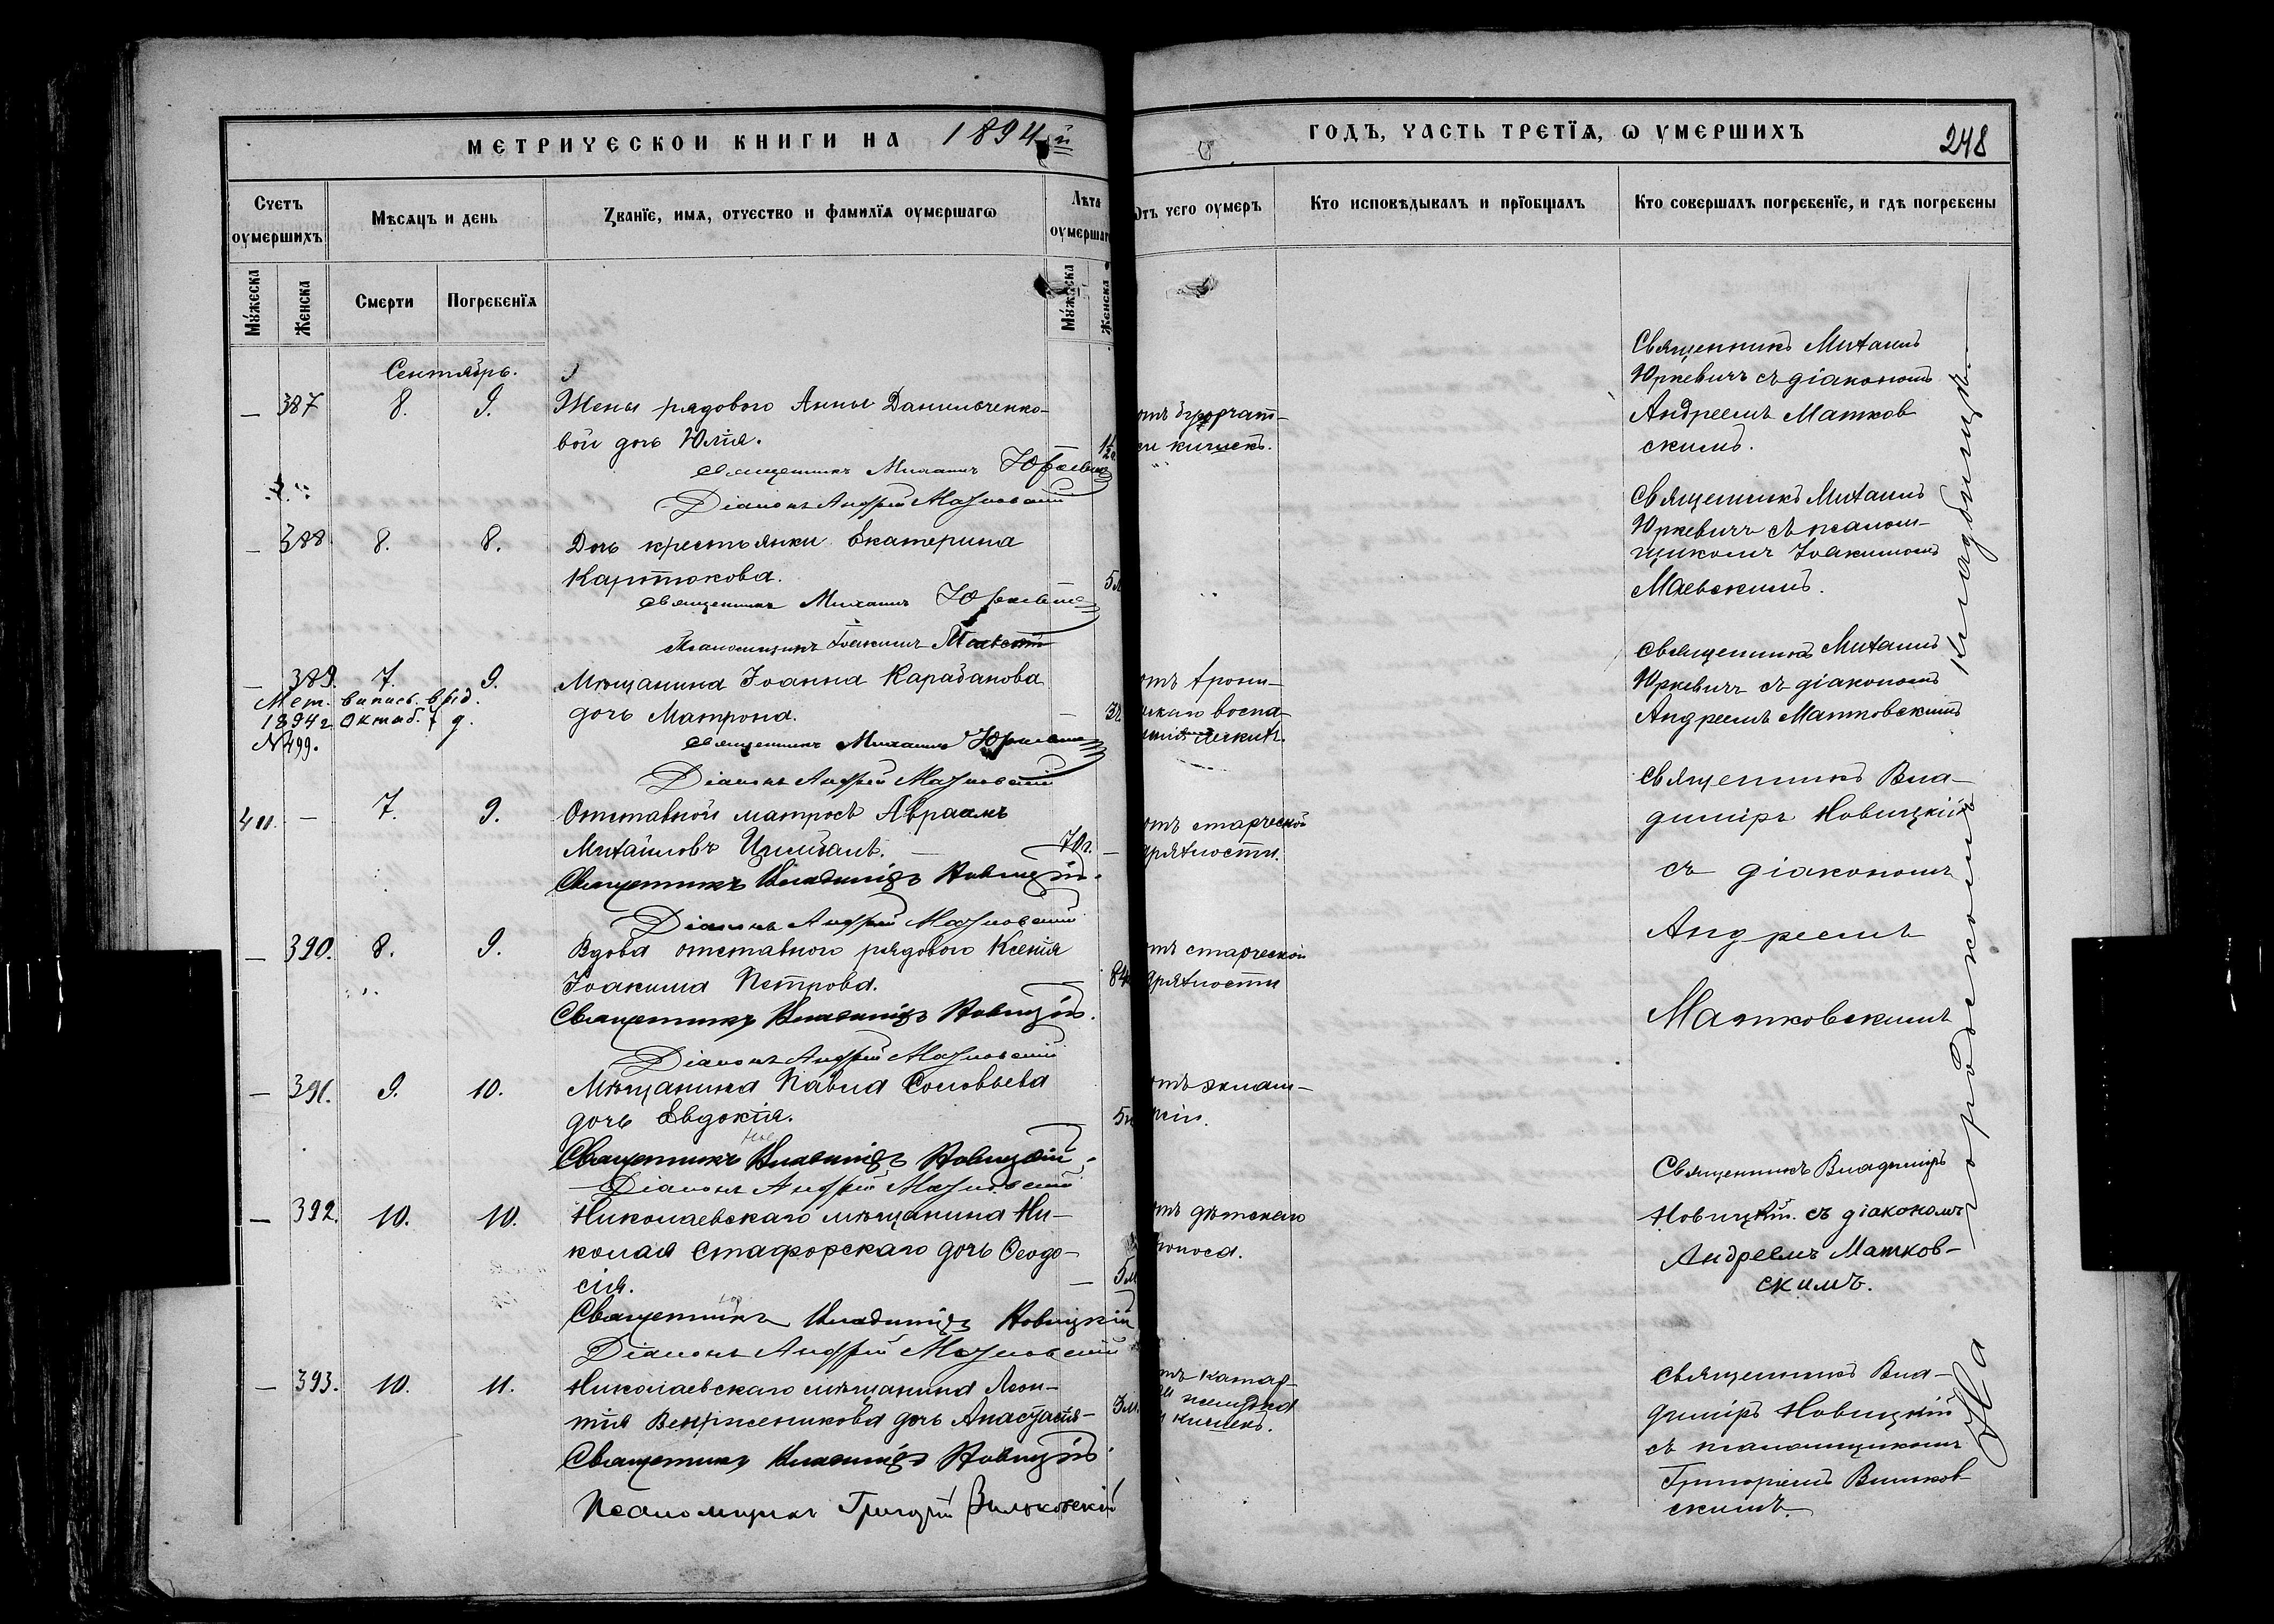 МЕТРИЧЕСКОИ КНИГИ НА 1894й
ГОДЪ, ЧАСТЬ ТРЕТІѦ, Ѡ УМЕРШИХЪ
248
Счетъ оумершихъ
Мѣсяцъ и день
Званїе, имѧ, отчество и фамилїѧ оумершагѡ
Лѣта оумершаг
Отъ чего оумеръ
Кто исповѣдывалъ и прїобщалъ
Кто совершалъ погребенїе, и гдѣ погребены
Мужеска
Женска
Смерти
Погребенїѧ
Мужеска
Женска
Сентябрь.
— 387 8. 9. Жены рядового Анны Данильченко-
вой дочь Юлія. 1½
священникъ Михаилъ Юркевичъ
Діаконъ Андрей Матковскій
кишекъ.
Священникъ Михаилъ
Юркевичъ съ діакономъ
Андреемъ Матков
скимъ.
— 388 8. 8. Дочь крестьянки Екатерина
Карпюкова. 5м
священникъ Михаилъ Юркевичъ
Псаломщикъ Іоакимъ Маевскій
Священникъ Михаилъ
Юркевичъ съ псалом-
щикомъ Іоакимомъ
Маевскимъ.
— 389. 7. 9. Мѣщанина Іоанна Карабанова
дочь Матрона. — 3г
Мет. випись.
1894г Октяб. 7 д.
№499.
священникъ Михаилъ Юркевичъ
Діаконъ Андрей Матковскій
отъ хрони-
ческаго воспа-
легкихъ.
Священникъ Михаилъ
Юркевичъ съ діакономъ
Андреемъ Матковскимъ
411. — 7. 9. Отставной матросъ Авраамъ
Михайловъ 70г. —
Священникъ Владиміръ Новицкій.
Діаконъ Андрей Матковскій
отъ старческой
дряхлости.
Священникъ Вла-
диміръ Новицкій
съ діакономъ
Андреемъ
Матковскимъ
— 390. 8. 9. Вдова отставного рядового Ксенія
Іоакима Петрова. 84
Священникъ Владиміръ Новицкій.
Діаконъ Андрей Матковскій
отъ старческой
дряхлости
— 391. 9. 10. Мѣщанина Павла Соловьева
дочь Евдокія. 5м
Священникъ Владиміръ Новицкій.
Діаконъ Андрей Матковскій
отъ эклам-
псіи.
— 392. 10. 10. Николаевскаго мѣщанина Ни-
колая Стафорскаго дочь Ѳеодо-
сія. — 5м
Священникъ Владиміръ Новицкій
Діаконъ Андрей Матковскій
отъ дѣтскаго
поноса.
Священникъ Владиміръ
Новицкій съ діакономъ
Андреемъ Матков-
скимъ.
— 393. 10. 11. Николаевскаго мѣщанина Леон-
тія дочь Анастасія- 3м.
Священникъ Владиміръ Новицкій.
Псаломщикъ Григорій Вильковскій
отъ катар-
желудка
и кишекъ.
Священникъ Вла-
диміръ Новицкій
съ псаломщикомъ
Григоріемъ Вильков-
скимъ.
На городскомъ кладбищѣ.